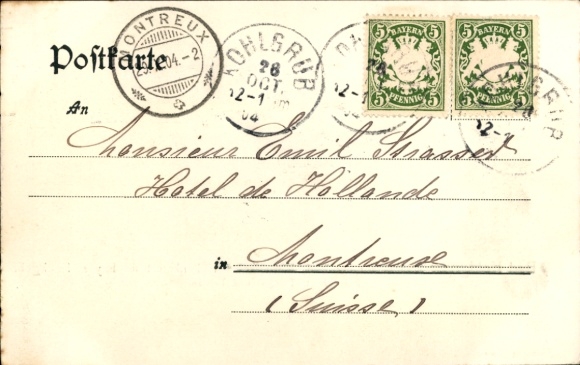 Postkarte
MONTREUX
KOHLGRUB
26
OCT.
12-1
04
BAYERN
5 5
PFENNIG
BAYERN
5 5
PFENNIG
An
Monsieur Emil Strasser
Hotel de Hollande
in Montreux
(Suisse)